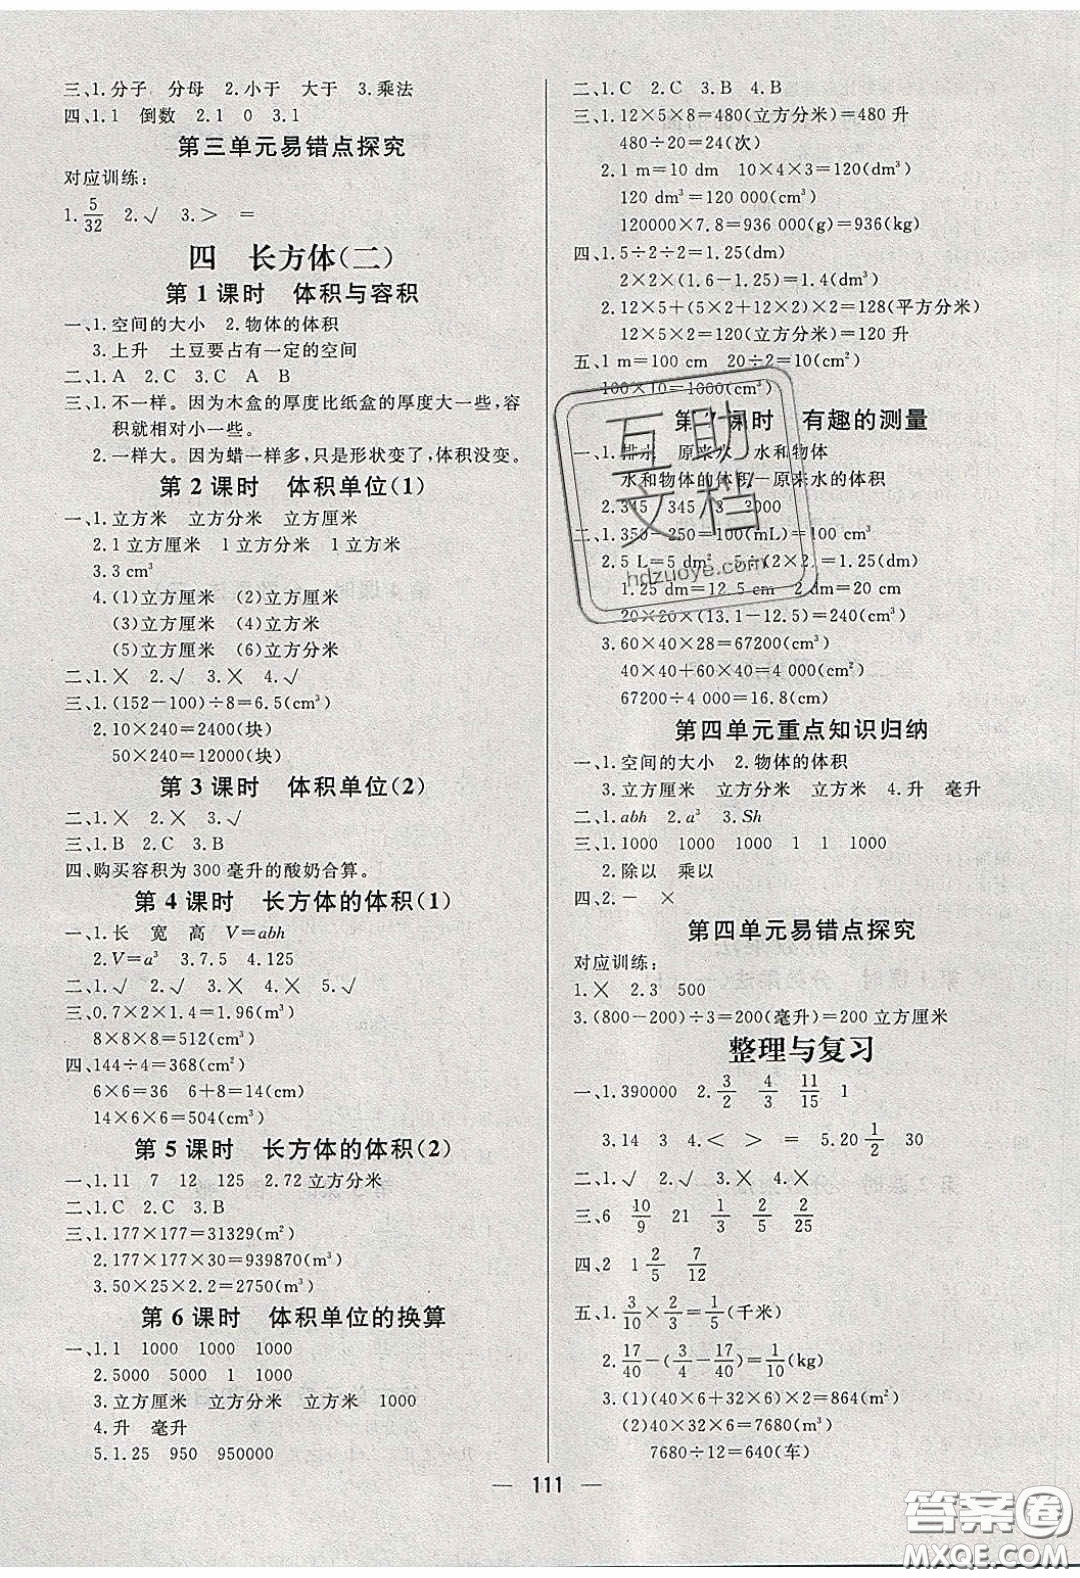 三、1.分子　分母　2.小于　大于　3.乘法
四、1.1　倒数　2.1　0　3.1
第三单元易错点探究
对应训练：
1.5/32　2.√　3.>　=
四　长方体(二)
第1课时　体积与容积
一、1.空间的大小　2.物体的体积
3.上升　土豆要占有一定的空间
二、1.A　2.C　3.C　A　B
三、1.不一样。因为木盒的厚度比纸盒的厚度大一些,容
积就相对小一些。
2.一样大。因为蜡一样多,只是形状变了,体积没变。
第2课时　体积单位(1)
一、1.立方米　立方分米　立方厘米
2.1立方厘米　1立方分米　1立方米
3.3 cm³
4.(1)立方厘米　(2)立方厘米
(3)立方厘米　(4)立方米
(5)立方厘米　(6)立方分米
二、1.×　2.√　3.×　4.√
三、1.(152－100)÷8=6.5(cm³)
2.10×240=2400(块)
50×240=12000(块)
第3课时　体积单位(2)
二、1.×　2.×　3.√
三、1.B　2.C　3.B
四、购买容积为300毫升的酸奶合算。
第4课时　长方体的体积(1)
一、1.长　宽　高　V=abh
2.V=a³　3.7.5　4.125
二、1.√　2.√　3.√　4.×　5.√
三、0.7×2×1.4=1.96(m³)
8×8×8=512(cm³)
四、144÷4=368(cm²)
6×6=36　6+8=14(cm)
14×6×6=504(cm³)
第5课时　长方体的体积(2)
一、1.11　7　12　125　2.72立方分米
二、1.C　2.C　3.B
三、1.177×177=31329(m²)
2.177×177×30=939870(m³)
3.50×25×2.2=2750(m³)
第6课时　体积单位的换算
一、1.1　1000　1000　1000
2.5000　5000　1　1000
3.立方厘米　立方分米　立方米　1000
4.升　毫升
5.1.25　950　950000
二、1.C　2.C　3.B　4.B
三、1.12×5×8=480(立方分米)=480升
480÷20=24(次)
2.1 m=10 dm　10×4×3=120(dm³)
120 dm³=120 000(cm³)
120000×7.8=936 000(g)=936(kg)
四、1.5÷2÷2=1.25(dm)
2×2×(1.6－1.25)=1.4(dm³)
2.12×5+(5×2+12×2)×2=128(平方分米)
12×5×2=120(立方分米)=120升
五、1 m=100 cm　20÷2=10(cm²)
100×10=1000(cm³)
第7课时　有趣的测量
一、1.排水　原来水　水和物体
水和物体的体积－原来水的体积
2.345　345　3　3000
二、1.350－250=100(mL)=100 cm³
2.5 L=5 dm³　5÷(2×2)=1.25(dm)
1.25 dm=12.5 cm　2 dm=20 cm
20×20×(13.1－12.5)=240(cm³)
3.60×40×28=67200(cm³)
40×40+60×40=4 000(cm²)
67200÷4 000=16.8(cm)
第四单元重点知识归纳
一、1.空间的大小　2.物体的体积
3.立方厘米　立方分米　立方米　4.升　毫升
二、1.abh　2.a³　3.Sh
三、1.1000　1000　1000　1　1　1000
2.除以　乘以
四、2.－　×
第四单元易错点探究
对应训练：
1.×　2.3　500
3.(800－200)÷3=200(毫升)=200立方厘米
整理与复习
一、1.390000　2.3/2　4/3　11/15　1
3.14　3　4.<　>　=　5.20　1/2　30
二、1.√　2.√　3.×　4.×
三、6　10/9　21　1/3　2/5　2/25
四、2　1 2/5　7/12
五、1.3/10×2/3=1/5(千米)
2.17/40－(3/4－17/40)=1/10(kg)
3.(1)(40×6+32×6)×2=864(m²)
(2)40×32×6=7680(m³)
7680÷12=640(车)
— 111 —
互助
文档
hdzuoye.com
答案圈
MXQE.COM